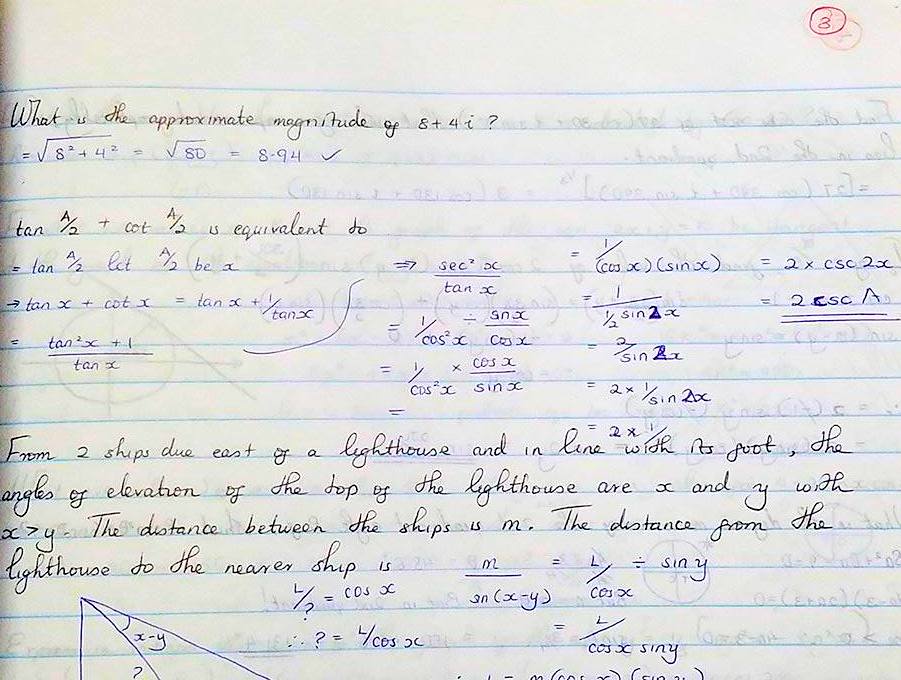 3
What is the approximate magnitude of 8+4i?
= √8²+4² = √80 = 8.94 ✓
tan A/2 + cot A/2 is equivalent to
= tan A/2 let A/2 be x
→ tan x + cot x = tan x + 1/tanx
= tan²x + 1 / tan x
⇒ sec² x / tan x
= 1/cos²x ÷ sinx / cosx
= 1/cos²x × cos x / sin x
=
= 1/(cos x)(sin x)
= 1 / 1/2 sin 2x
= 2/sin 2x
= 2 × 1/sin 2x
= 2 × 1/
= 2 × csc 2x
= 2 csc A
From 2 ships due east of a lighthouse and in line with its foot, the
angles of elevation of the top of the lighthouse are x and y with
x > y. The distance between the ships is m. The distance from the
lighthouse to the nearer ship is
L/? = cos x
∴ ? = L/cos x
m / sn(x-y) = L/cosx ÷ sin y
= L / cosx siny
x-y
?